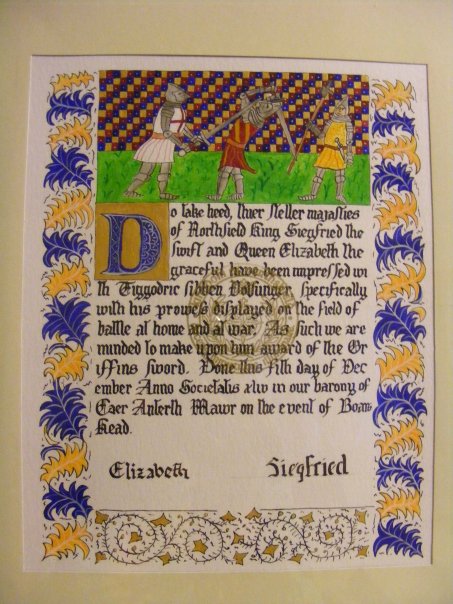 Do take heed, thier steller majasties
of Northfield King Siegfried the
swift and Queen Elizabeth the
graceful have been impressed wi
th Tiggodric sibben Volsunger, specifically
with his prowess displayed on the field of
battle at home and at war. As such we are
minded to make upon him award of the Gr
iffins sword. Done this fith day of Dec
ember Anno Societatis xliv in our barony of
Caer Anterth Mawr on the event of Boars
Head.
Elizabeth Siegfried